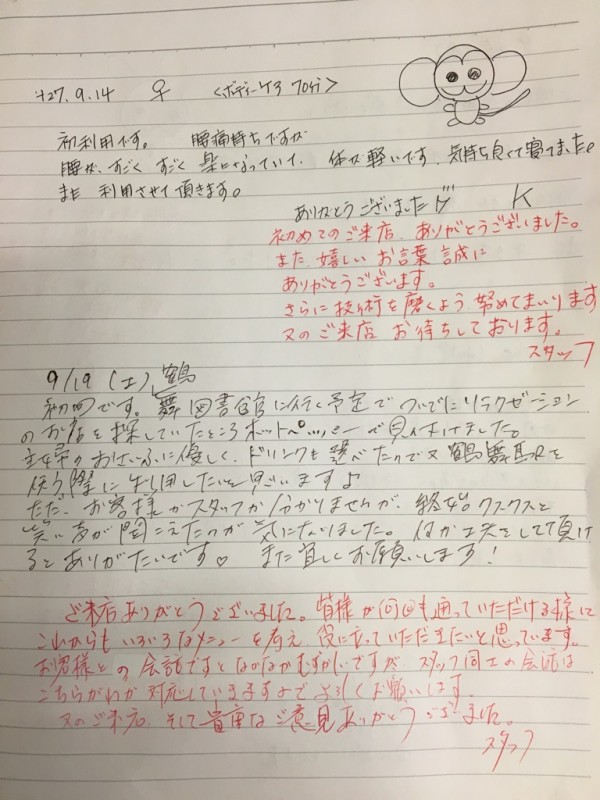 H27.9.14 ♀ <ボディーケア 70分>
初利用です。 腰痛持ちですが
腰が、すごく すごく 楽になっていて、 体が 軽いです。気持ち良くて寝てました。
また 利用させて頂きます。
ありがとうございました K
初めてのご来店、ありがとうございました。
また、嬉しい お言葉 誠に
ありがとうございます。
さらに技術を磨くよう 努めてまいります
又のご来店 お待ちしております。
スタッフ
9/19 (土) 鶴
初回です。舞図書館に行く予定でついでにリラクゼーション
のお店を探していたところホットペッパーで見付けました。
主婦のおさいふに優しく、ドリンクも選べたので又 鶴舞
使う際に利用したいと思いますよ
ただ、お客様かスタッフか分かりませんが、終始クスクスと
笑い声が聞こえたのが気になりました。何か工夫をして頂け
るとありがたいです。♡ また宜しくお願いします!
ご来店ありがとうございました。皆様が何回も通っていただける様に
これからも いろいろなメニューを考え 役に立っていただきたいと思っています。
お客様との会話ですとなかなかむずかしいですが スタッフ同士の会話は
こちらがわが対応していきますのでよろしくお願いします。
又のご来店、そして貴重なご意見ありがとうございました。
スタッフ